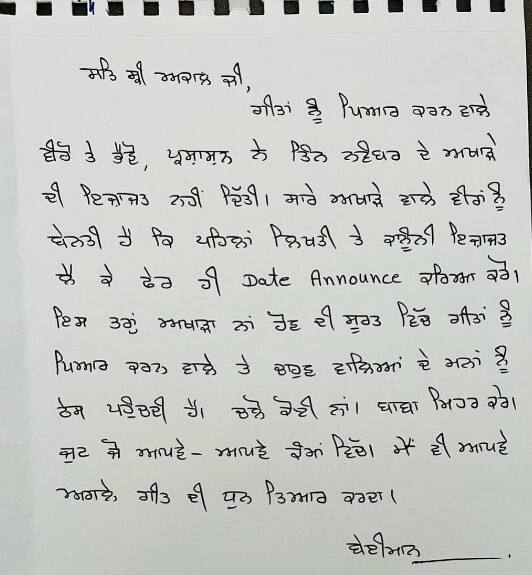 ਸਤਿ ਸ਼੍ਰੀ ਅਕਾਲ ਜੀ,
ਗੀਤਾਂ ਨੂੰ ਪਿਆਰ ਕਰਨ ਵਾਲੇ
ਵੀਰੋ ਤੇ ਭੈਣੋ, ਪ੍ਰਸ਼ਾਸ਼ਨ ਨੇ ਤਿੰਨ ਨਵੰਬਰ ਦੇ ਅਖਾੜੇ
ਦੀ ਇਜਾਜਤ ਨਹੀਂ ਦਿੱਤੀ। ਸਾਰੇ ਅਖਾੜੇ ਵਾਲੇ ਵੀਰਾਂ ਨੂੰ
ਬੇਨਤੀ ਹੈ ਕਿ ਪਹਿਲਾਂ ਲਿਖਤੀ ਤੇ ਕਾਨੂੰਨੀ ਇਜਾਜਤ
ਲੈ ਕੇ ਫੇਰ ਹੀ Date Announce ਕਰਿਆ ਕਰੋ।
ਇਸ ਤਰ੍ਹਾਂ ਅਖਾੜਾ ਨਾਂ ਹੋਣ ਦੀ ਸੂਰਤ ਵਿੱਚ ਗੀਤਾਂ ਨੂੰ
ਪਿਆਰ ਕਰਨ ਵਾਲੇ ਤੇ ਚਾਹੁਣ ਵਾਲਿਆਂ ਦੇ ਮਨਾਂ ਨੂੰ
ਠੇਸ ਪਹੁੰਚਦੀ ਹੈ। ਚਲੋ ਕੋਈ ਨਾਂ। ਬਾਬਾ ਮਿਹਰ ਕਰੇ।
ਜੁਟ ਜੋ ਆਪਣੇ - ਆਪਣੇ ਕੰਮਾਂ ਵਿੱਚ। ਮੈਂ ਵੀ ਆਪਣੇ
ਅਗਲੇ ਗੀਤ ਦੀ ਧੁਨ ਤਿਆਰ ਕਰਦਾ।
ਬੇਈਮਾਨ